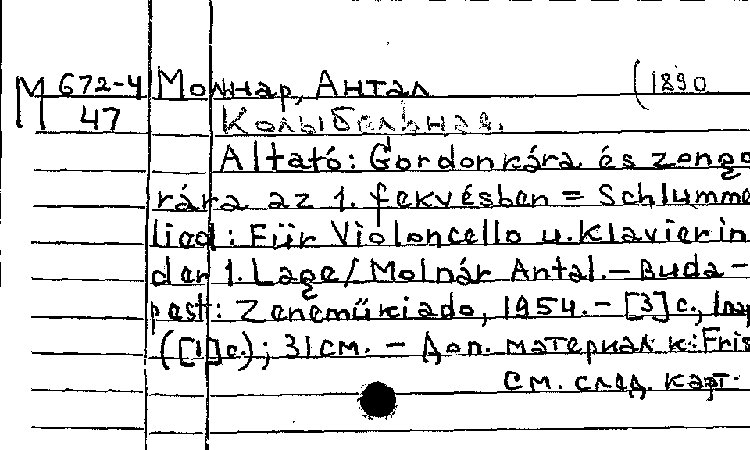 М 672-4 Молнар, Антал (1890
47 Колыбельная.
Altató: Gordonkára és zongo
rára az 1. fekvésben = Schlumme
lied: Für Violoncello u. Klavier in
der 1. Lage / Molnár Antal. – Buda –
pest: Zeneműkiado, 1954. – [3] с.,
([1] с.); 31 см. – Доп. материал к: Fris
См. след. карт.